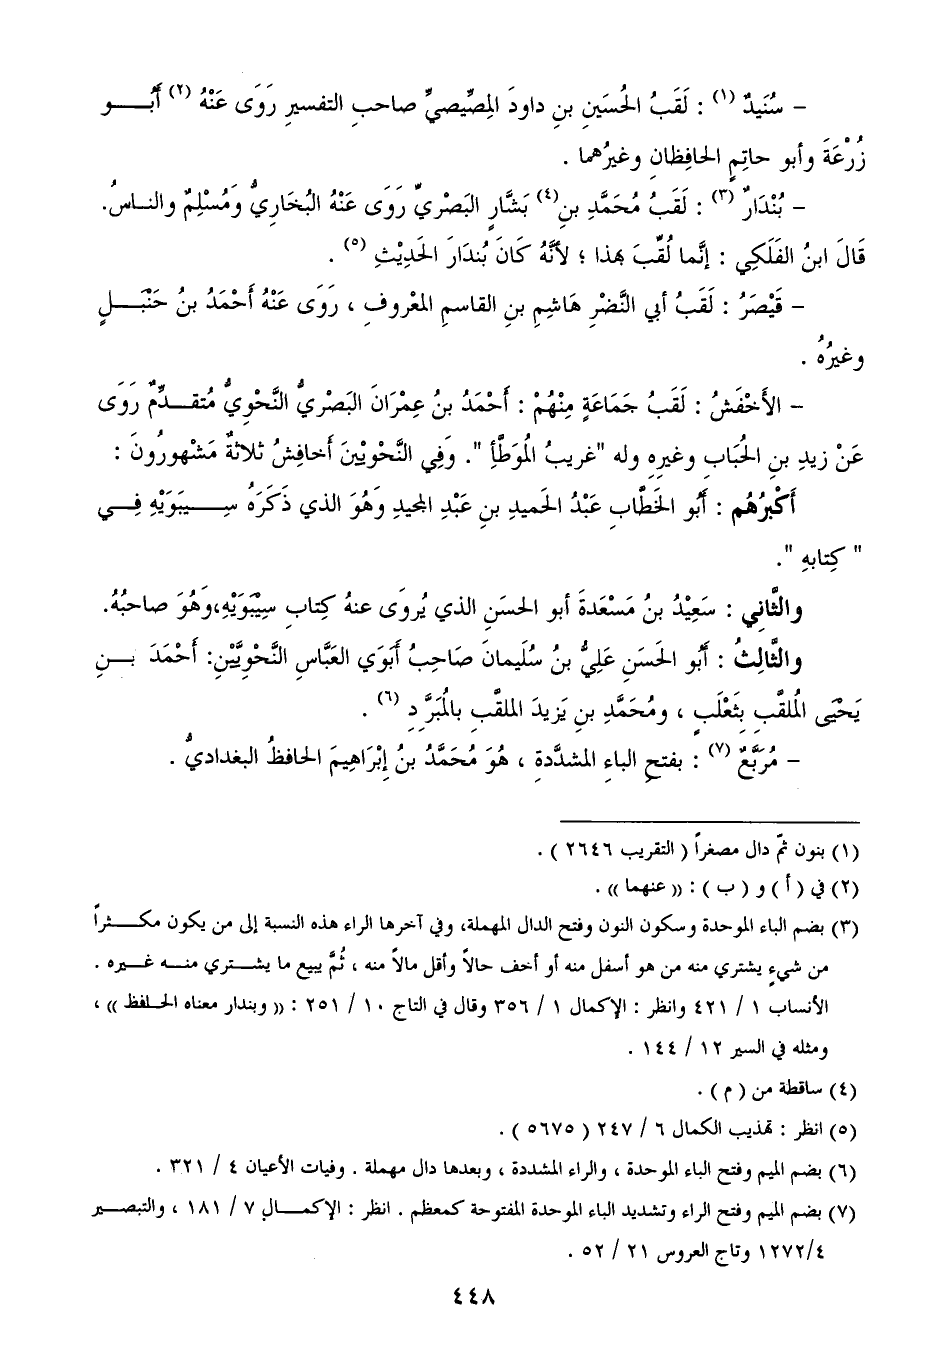 – سُنَيدٌ (١) : لَقَبُ الحُسَينِ بنِ داودَ المِصِّيصِيِّ صاحبِ التفسيرِ رَوَى عَنْهُ (٢) أَبُـــو
زُرْعَةَ وأبو حاتِمٍ الحافِظانِ وغيرُهما .
– بُنْدَارٌ (٣) : لَقَبُ مُحَمَّدِ بنِ(٤) بَشَّارٍ البَصْرِيِّ رَوَى عَنْهُ البُخَارِيُّ وَمُسْلِمٌ والنـاسُ.
قَالَ ابنُ الفَلَكِي : إنَّما لُقِّبَ بهذا ؛ لأنَّهُ كَانَ بُندَارَ الحَدِيْثِ (٥) .
– قَيْصَرُ : لَقَبُ أبي النَّضْرِ هَاشِمِ بنِ القاسمِ المَعْروفِ ، رَوَى عَنْهُ أَحْمَدُ بنُ حَنْبَـــلٍ
وغيرُهُ .
– الأَخْفَشُ : لَقَبُ جَمَاعَةٍ مِنْهُمْ : أَحْمَدُ بنُ عِمْرَانَ البَصْرِيُّ النَّحْوِيُّ مُتقـــدِّمٌ رَوَى
عَنْ زيدِ بنِ الحُبَابِ وغيرِهِ وله "غريبُ المُوَطَّأِ ". وَفِي النَّحْوِيِّينَ أخافِشُ ثلاثةٌ مَشْهورُونَ :
أَكْبَرُهُم : أَبُو الخَطَّابِ عَبْدُ الحَميدِ بنِ عَبْدِ المجيدِ وَهُوَ الذي ذَكَرَهُ سِـــيبَوَيْهِ فِـــي
" كِتابهِ ".
والثَّاني : سَعِيْدُ بنُ مَسْعَدةَ أبو الحسَنِ الذي يُروَى عنهُ كِتابِ سِيْبَوَيْهِ،وَهُوَ صاحبُهُ.
والثَّالِثُ : أَبُو الحَسَنِ عَلِيُّ بنُ سُلَيمانَ صَاحِبُ أَبَوَي العَبَّاسِ النَّحْوِيَّيْنِ: أَحْمَدَ بــنِ
يَحْيَى المُلقَّبِ بثَعْلَبٍ ، ومُحَمَّدِ بنِ يَزِيدَ الملقَّبِ بالمُبَرَّدِ (٦) .
– مُرَبَّعٌ (٧) : بفتحِ الباءِ المشدَّدةِ ، هُوَ مُحَمَّدُ بنُ إبْرَاهِيمَ الحافظُ البغداديُّ .
(١) بنون ثمّ دال مصغراً ( التقريب ٢٦٤٦ ) .
(٢) في ( أ ) و ( ب ) : (( عنهما )) .
(٣) بضم الباء الموحدة وسكون النون وفتح الدال المهملة، وفي آخرها الراء هذه النسبة إلى من يكون مكـــثراً
من شيءٍ يشتري منه من هو أسفل منه أو أخف حالاً وأقل مالاً منه ، ثُمَّ يبيع ما يشـــتري منـــه غـــيره .
الأنساب ١ / ٤٢١ وانظر : الإكمال ١ / ٣٥٦ وقال في التاج ١٠ / ٢٥١ : (( وبندار معناه الحـــافظ )) ،
ومثله في السير ١٢ / ١٤٤ .
(٤) ساقطة من ( م ) .
(٥) انظر : تهذيب الكمال ٦ / ٢٤٧ ( ٥٦٧٥ ) .
(٦) بضم الميم وفتح الباء الموحدة ، والراء المشددة ، وبعدها دال مهملة . وفيات الأعيان ٤ / ٣٢١ .
(٧) بضم الميم وفتح الراء وتشديد الباء الموحدة المفتوحة كمعظم . انظر : الإكمـــال ٧ / ١٨١ ، والتبصـــير
١٢٧٢/٤ وتاج العروس ٢١ / ٥٢ .
٤٤٨